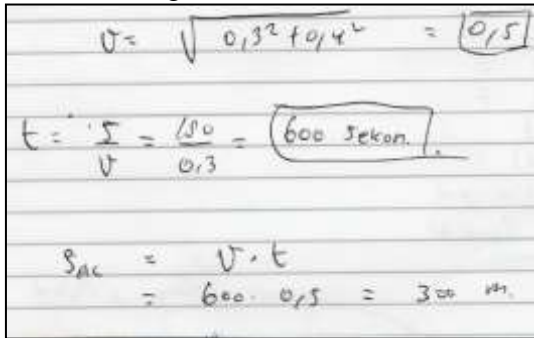 v = √0,3² + 0,4² = 0,5
t = S/v = 150/0,3 = 600 sekon.
S_AC = v . t
= 600 . 0,5 = 300 m.